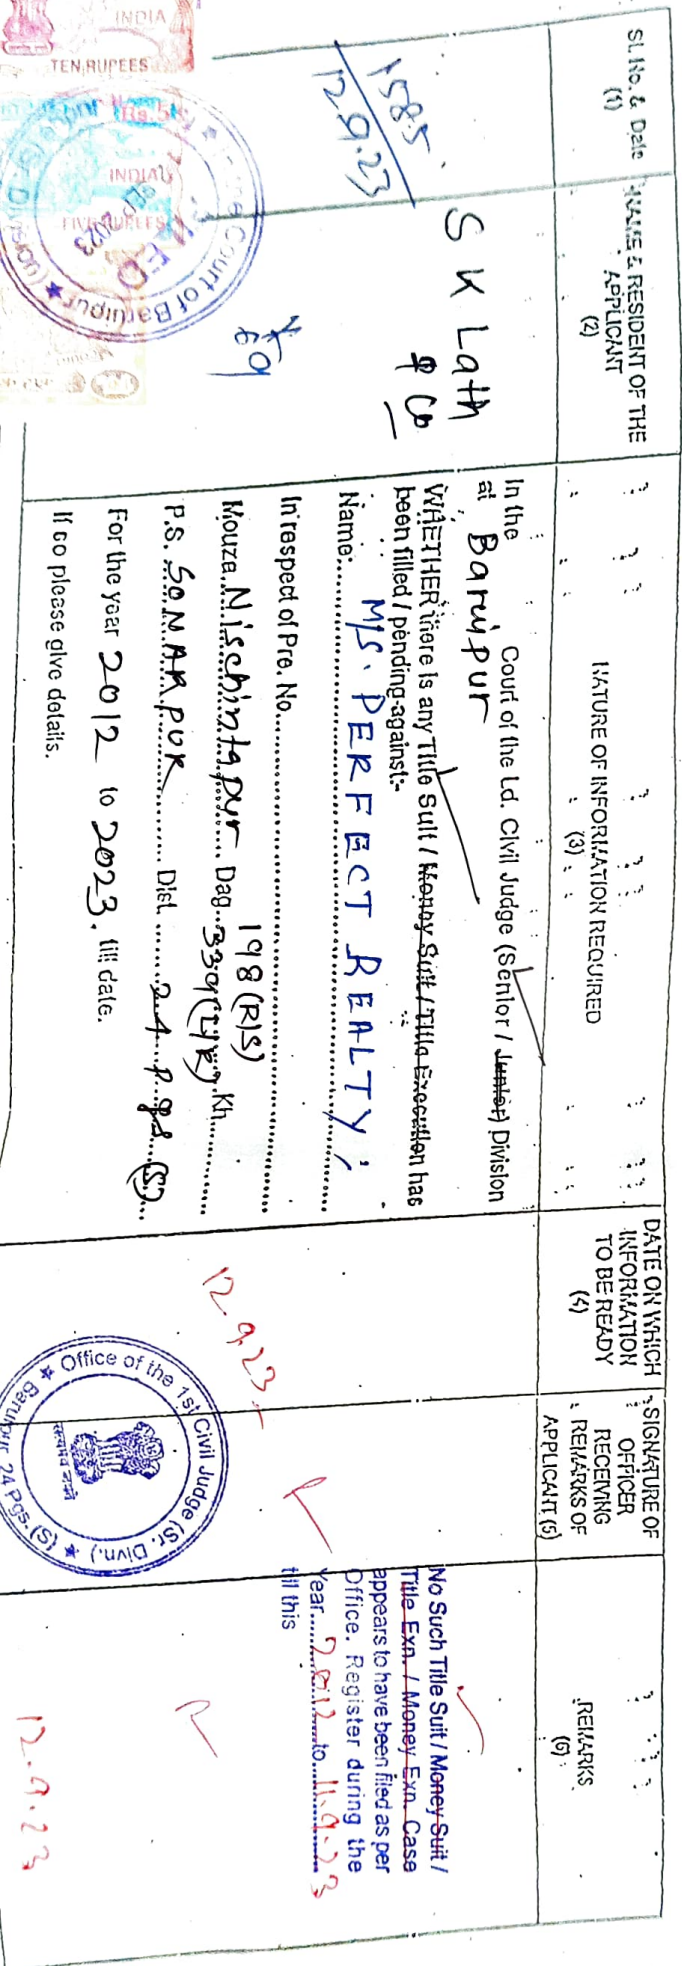 Sl. No. & Date
(1)
NAME & RESIDENT OF THE
APPLICANT
(2)
NATURE OF INFORMATION REQUIRED
(3)
DATE ON WHICH
INFORMATION
TO BE READY
(4)
SIGNATURE OF
OFFICER
RECEIVING
REMARKS OF
APPLICANT (5)
REMARKS
(6)
1585
12.9.23
S K Lath
& Co
In the Court of the Ld. Civil Judge (Senior / Junior) Division
at Baruipur
WHETHER there is any Title Suit / Money Suit / Title Execution has
been filled / pending against:-
Name: M/S. PERFECT REALTY
In respect of Pre. No.
198 (R/S)
Mouza Nischintapur Dag 339 (L/R) Kh
P.S. SONARPUR Dist. 24 Pgs (S)
For the year 2012 to 2023. till date.
If so please give details.
12.9.23
No Such Title Suit / Money Suit /
Title Exn. / Money Exn. Case
appears to have been filed as per
Office. Register during the
Year 2012 to 11.9.23
till this
12.9.23
INDIA
TEN RUPEES
Rs.5
INDIA
FIVE RUPEES
SEP 2023
Court of Baruipur
Office of the 1st Civil Judge (Sr. Divn.)
Baruipur 24 Pgs. (S)
सत्यमेव जयते